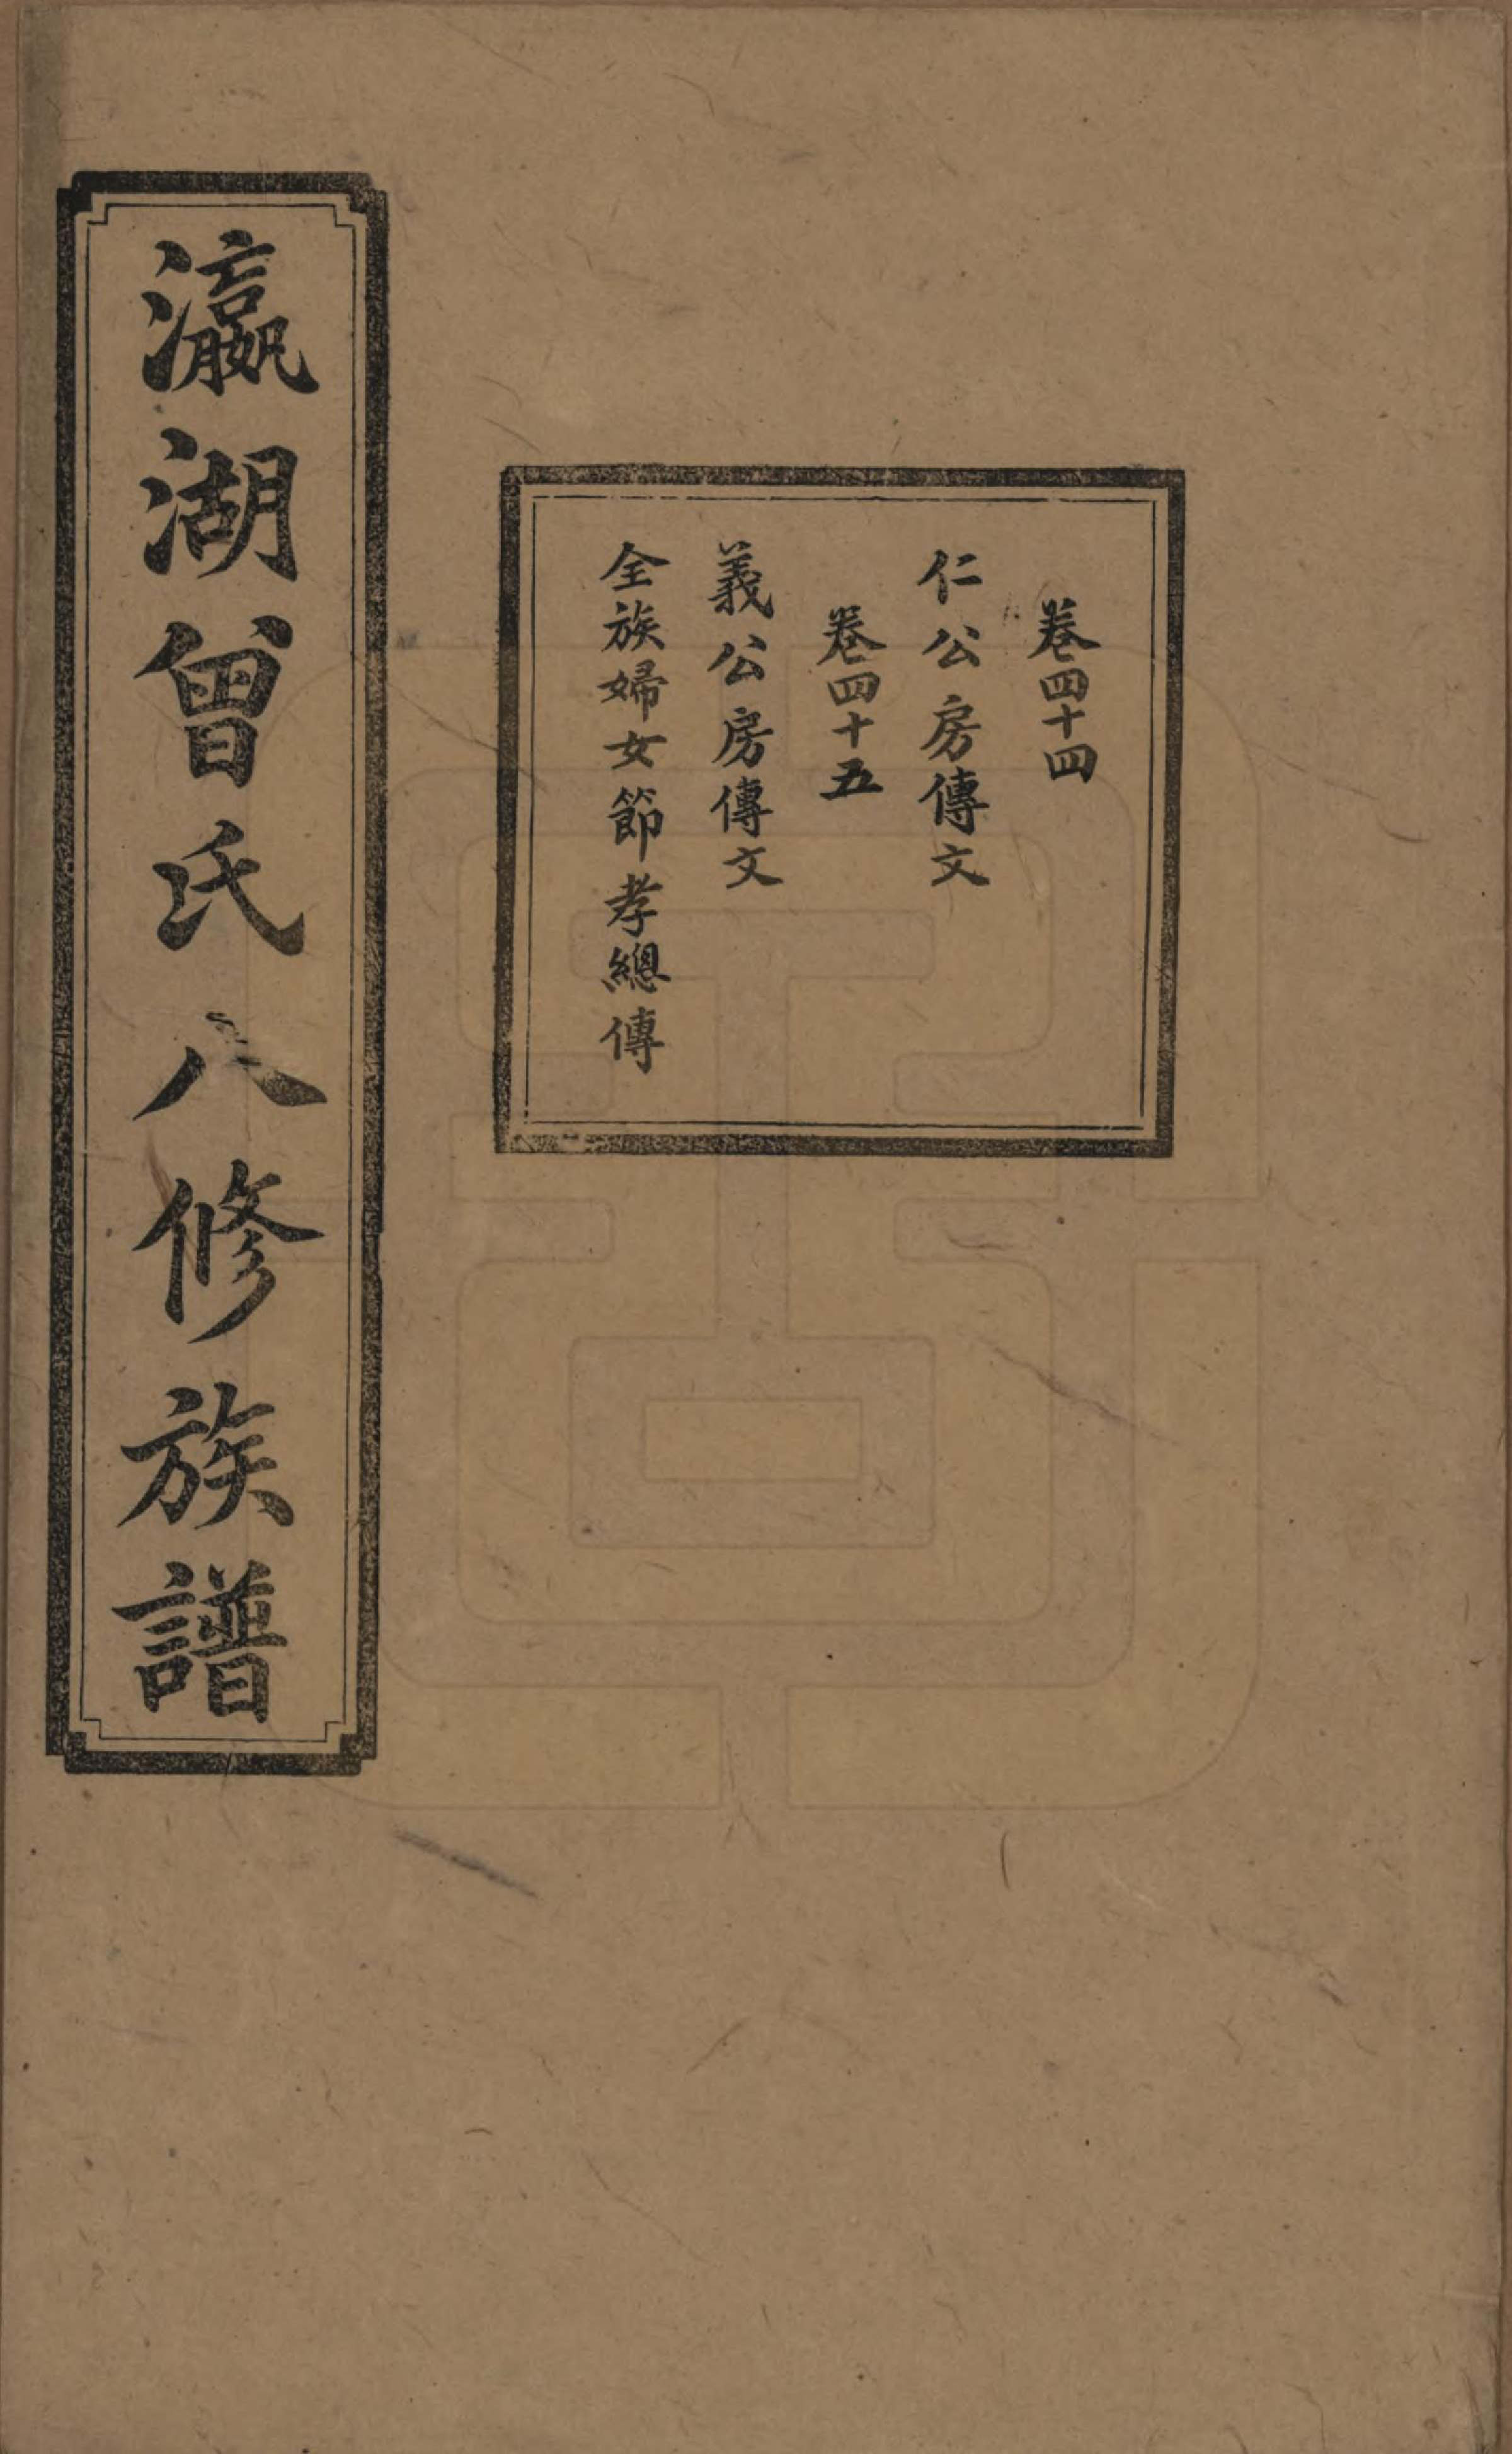 卷四十四
仁公房傳文
卷四十五
義公房傳文
全族婦女節孝總傳
瀛湖曾氏八修族譜